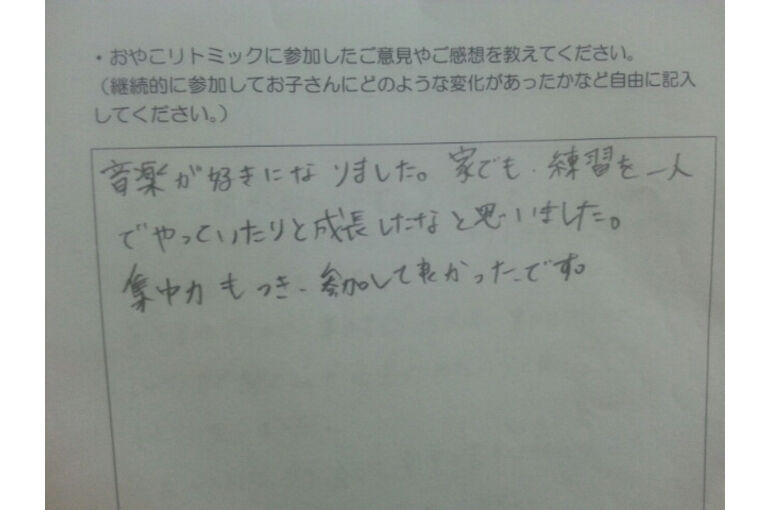 ・おやこリトミックに参加したご意見やご感想を教えてください。
（継続的に参加してお子さんにどのような変化があったかなど自由に記入
してください。）
音楽が好きになりました。家でも、練習を一人
でやっていたりと成長したなと思いました。
集中力もつき、参加して良かったです。